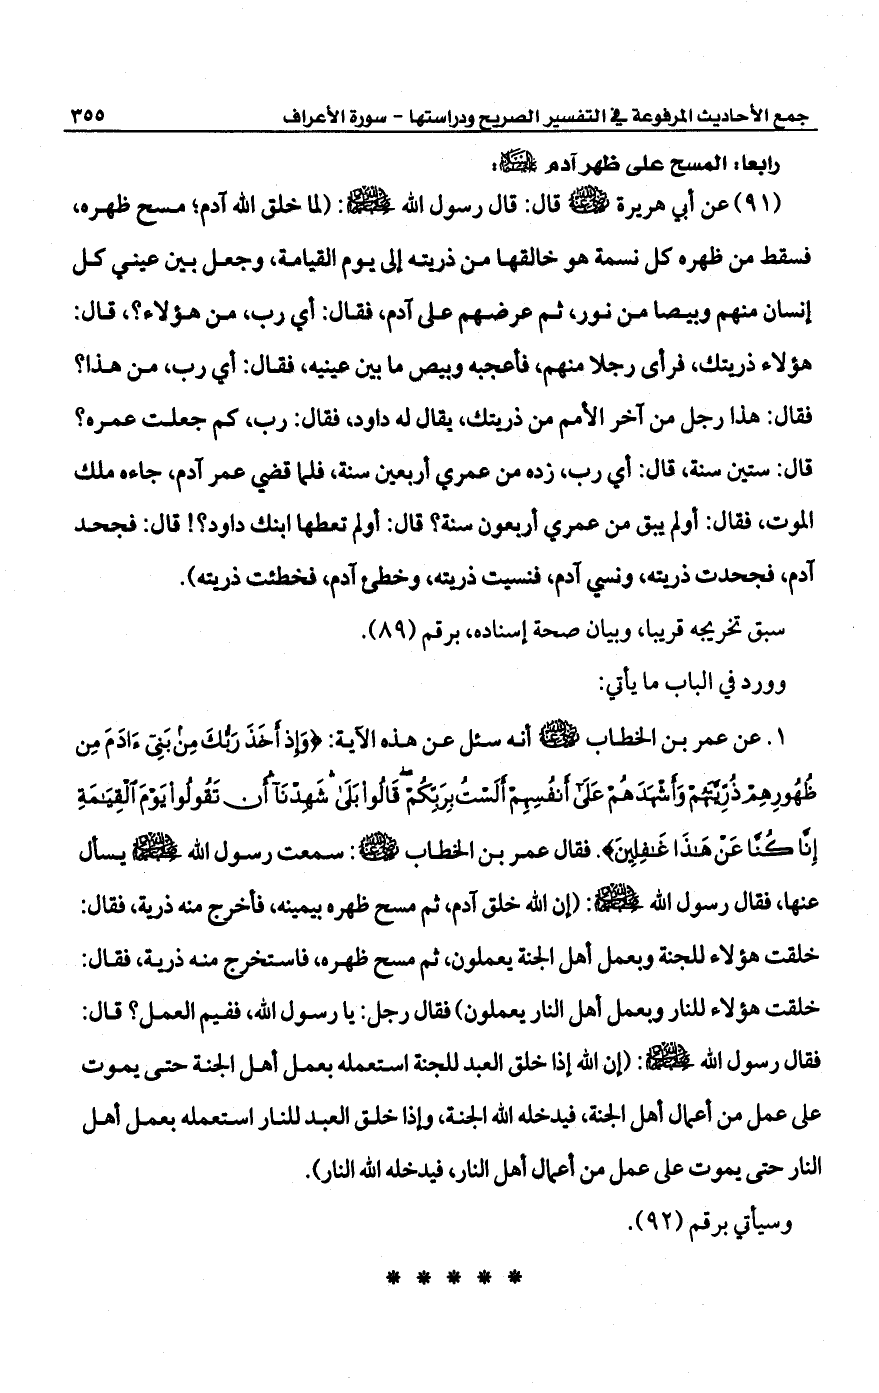 جمع الأحاديث المرفوعة في التفسير الصريح ودراستها - سورة الأعراف ٣٥٥
رابعا: المسح على ظهر آدم عليه السلام:
(٩١) عن أبي هريرة رضي الله عنه قال: قال رسول الله ﷺ: (لما خلق الله آدم؛ مسح ظهره،
فسقط من ظهره كل نسمة هو خالقها من ذريته إلى يوم القيامة، وجعل بين عيني كل
إنسان منهم وبيصا من نور، ثم عرضهم على آدم، فقال: أي رب، من هؤلاء؟، قال:
هؤلاء ذريتك، فرأى رجلا منهم، فأعجبه وبيص ما بين عينيه، فقال: أي رب، من هذا؟
فقال: هذا رجل من آخر الأمم من ذريتك، يقال له داود، فقال: رب، كم جعلت عمره؟
قال: ستين سنة، قال: أي رب، زده من عمري أربعين سنة، فلما قضي عمر آدم، جاءه ملك
الموت، فقال: أولم يبق من عمري أربعون سنة؟ قال: أولم تعطها ابنك داود؟! قال: فجحد
آدم، فجحدت ذريته، ونسي آدم، فنسيت ذريته، وخطئ آدم، فخطئت ذريته).
سبق تخريجه قريبا، وبيان صحة إسناده، برقم (٨٩).
وورد في الباب ما يأتي:
١. عن عمر بن الخطاب رضي الله عنه أنه سئل عن هذه الآية: ﴿وَإِذْ أَخَذَ رَبُّكَ مِنۢ بَنِىٓ ءَادَمَ مِن
ظُهُورِهِمْ ذُرِّيَّتَهُمْ وَأَشْهَدَهُمْ عَلَىٰٓ أَنفُسِهِمْ أَلَسْتُ بِرَبِّكُمْ ۖ قَالُوا۟ بَلَىٰ ۛ شَهِدْنَآ ۛ أَن تَقُولُوا۟ يَوْمَ ٱلْقِيَـٰمَةِ
إِنَّا كُنَّا عَنْ هَـٰذَا غَـٰفِلِينَ﴾. فقال عمر بن الخطاب رضي الله عنه: سمعت رسول الله ﷺ يسأل
عنها، فقال رسول الله ﷺ: (إن الله خلق آدم، ثم مسح ظهره بيمينه، فأخرج منه ذرية، فقال:
خلقت هؤلاء للجنة وبعمل أهل الجنة يعملون، ثم مسح ظهره، فاستخرج منه ذرية، فقال:
خلقت هؤلاء للنار وبعمل أهل النار يعملون) فقال رجل: يا رسول الله، ففيم العمل؟ قال:
فقال رسول الله ﷺ: (إن الله إذا خلق العبد للجنة استعمله بعمل أهل الجنة حتى يموت
على عمل من أعمال أهل الجنة، فيدخله الله الجنة، وإذا خلق العبد للنار استعمله بعمل أهل
النار حتى يموت على عمل من أعمال أهل النار، فيدخله الله النار).
وسيأتي برقم (٩٢).
* * * * *